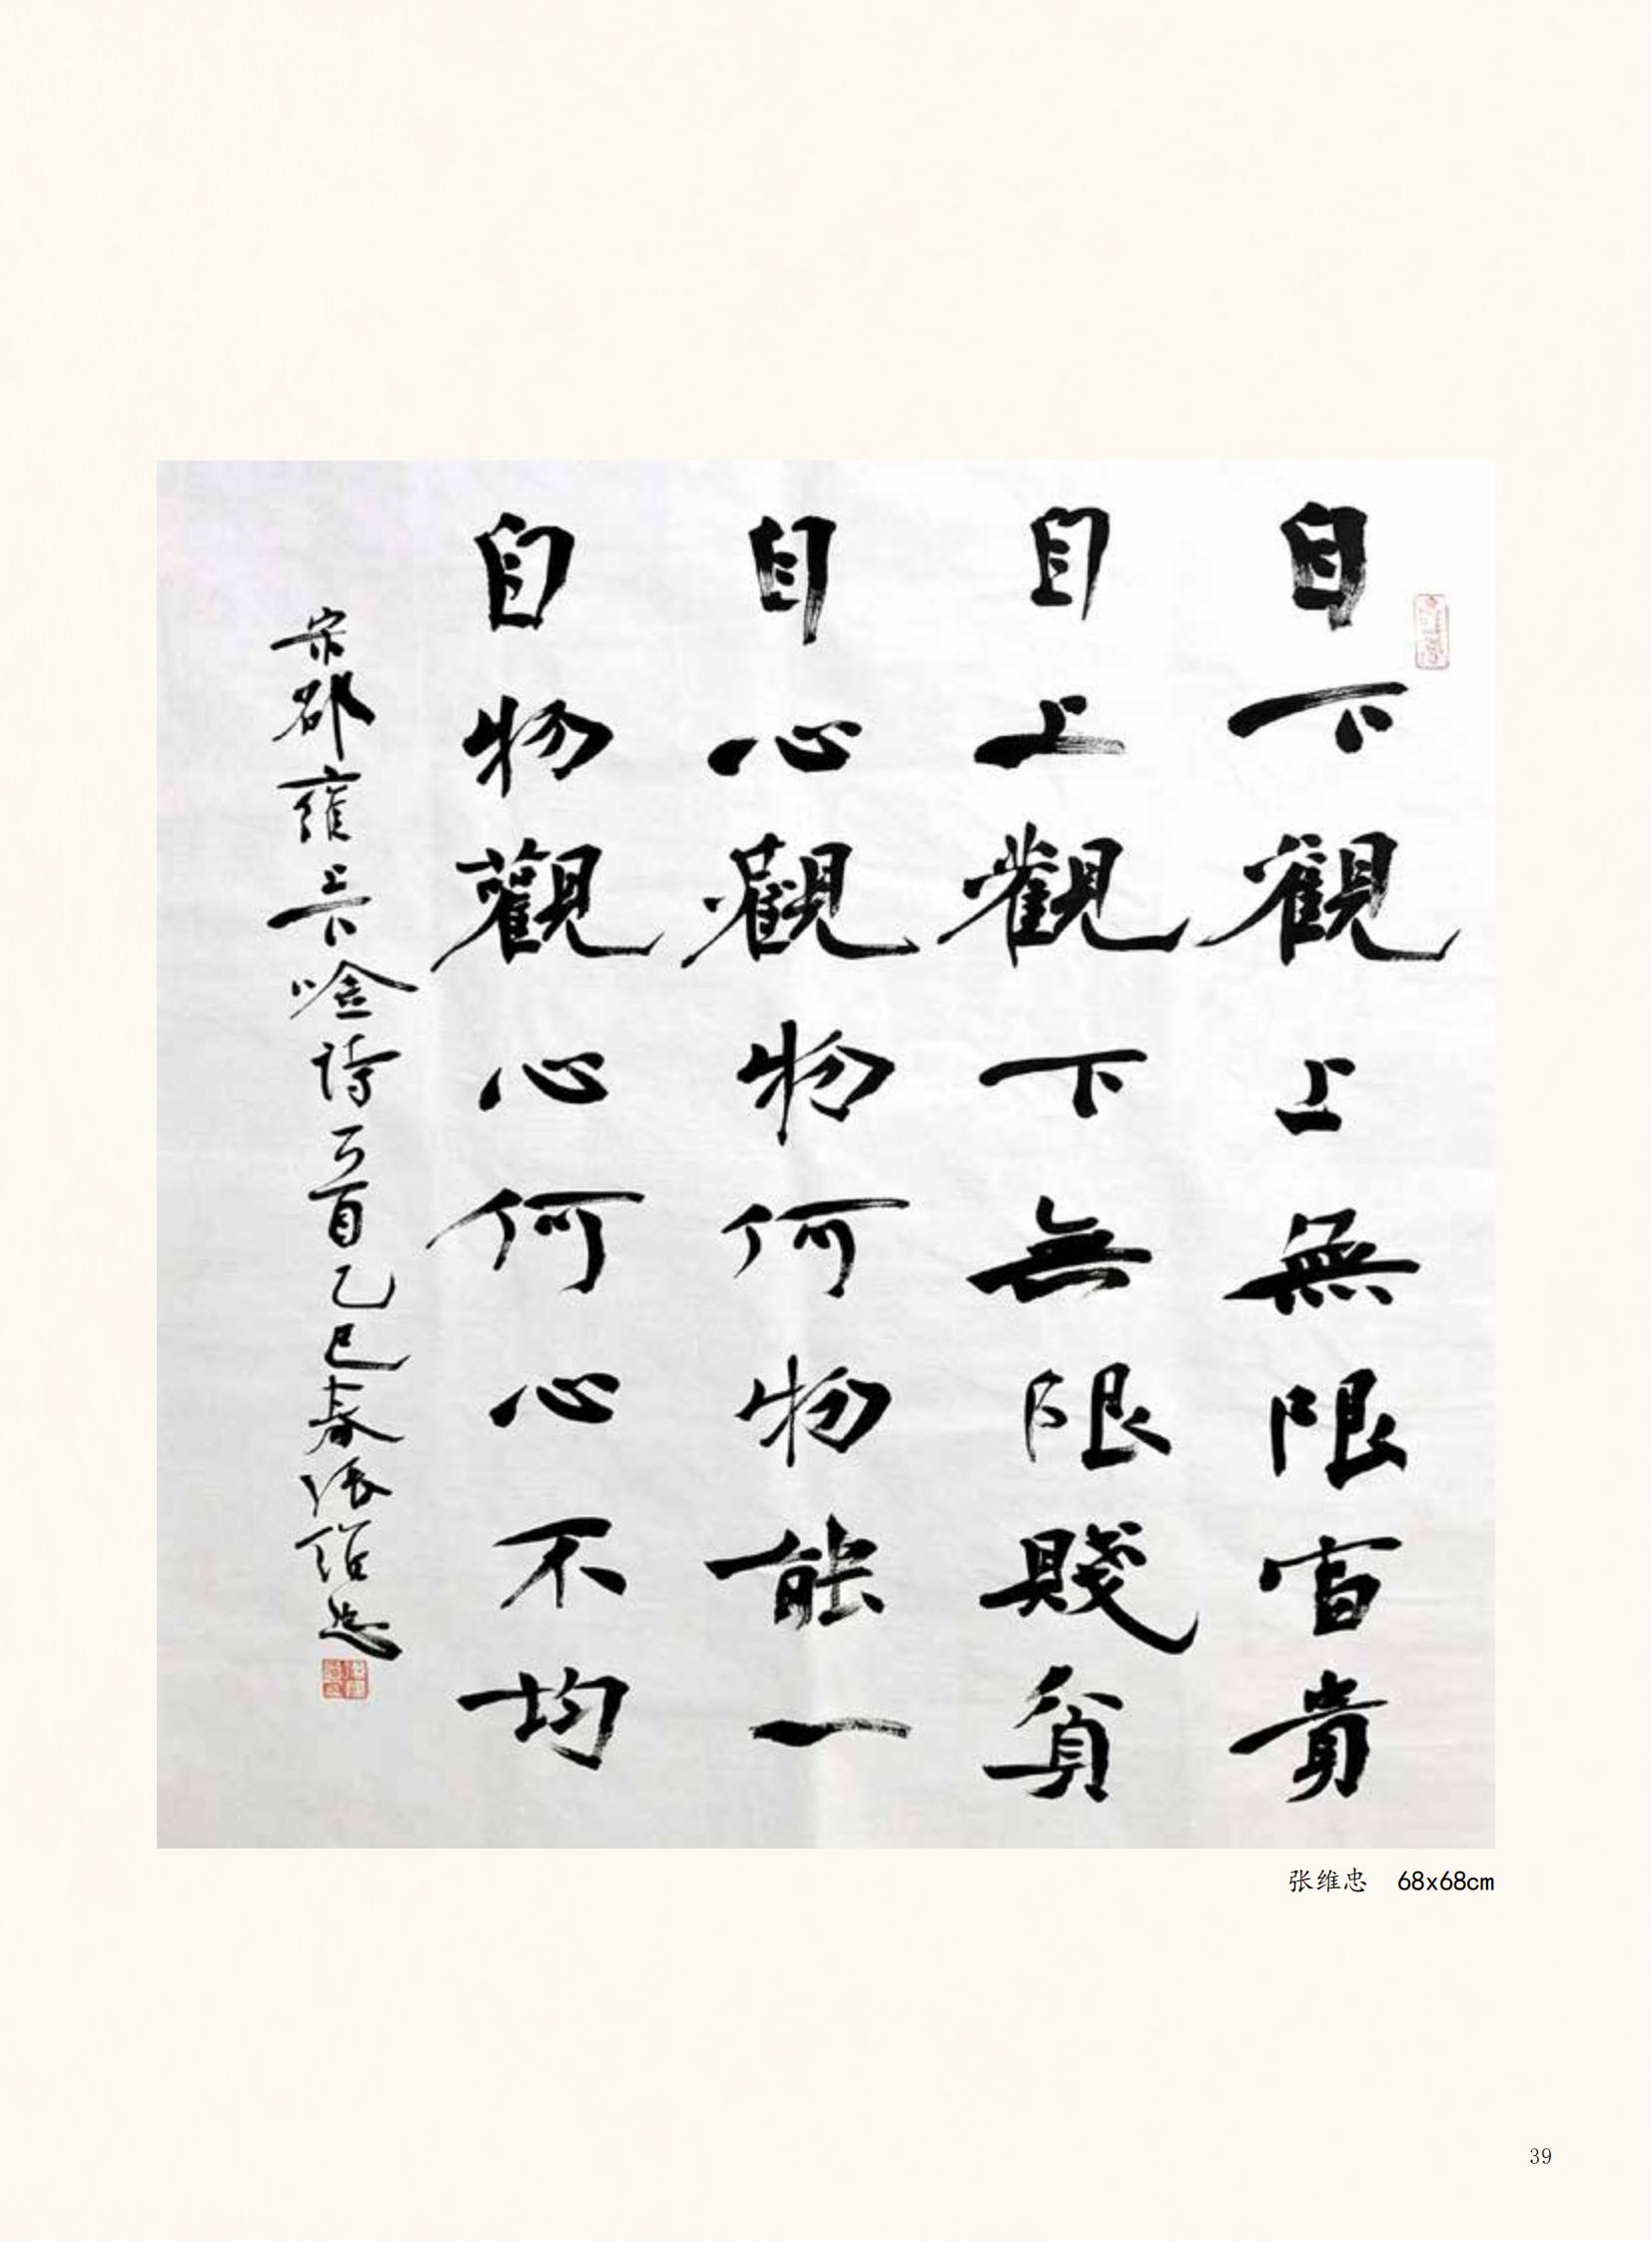 自下觀上無限富貴
自上觀下無限賤貧
自心觀物何物能一
自物觀心何心不均
宋邵雍上下唫詩一首乙巳春張維忠
张维忠 68x68cm
39